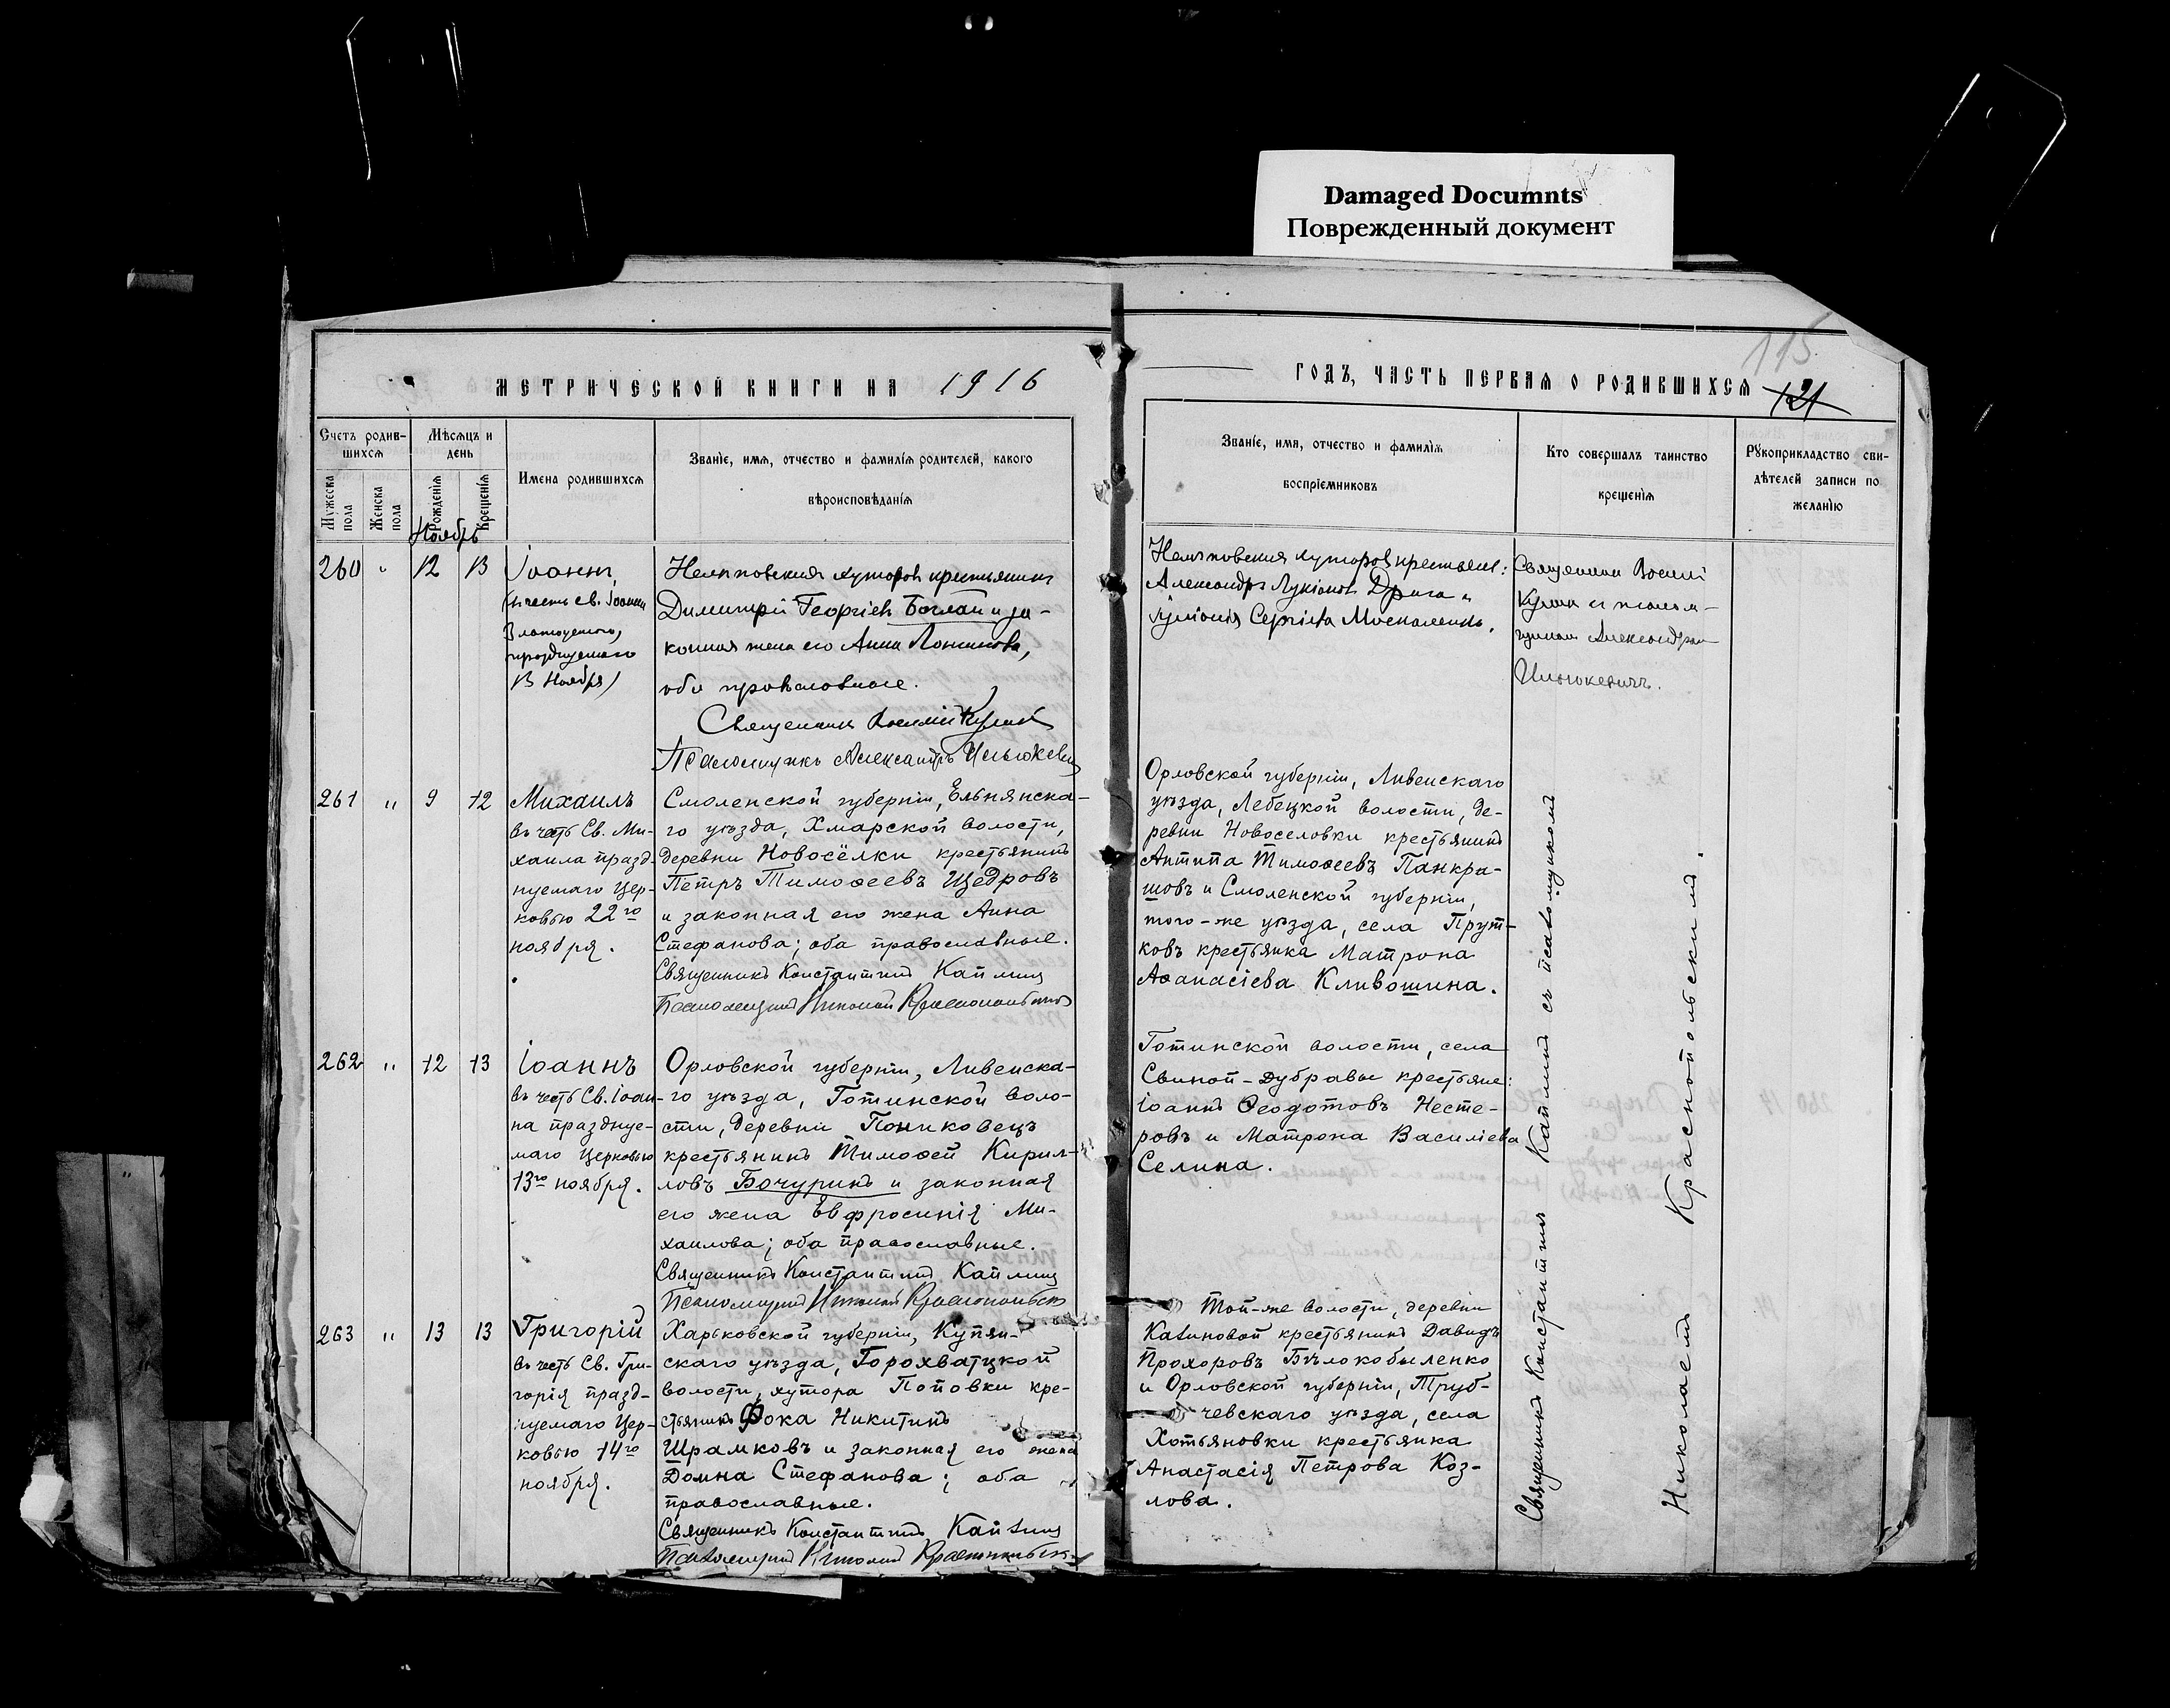 Damaged Documnts
Поврежденный документ
115
МЕТРИЧЕСКОЙ КНИГИ НА 1916
ГОДЪ, ЧАСТЬ ПЕРВАЯ О РОДИВШИХСЯ 121
Счетъ родив-
шихся
Мужеска пола
Женска пола
Мѣсяцъ и
день
Рожденія
Крещенія
Ноябрь
Имена родившихся
Званіе, имя, отчество и фамилія родителей, какого
вѣроисповѣданія
Званіе, имя, отчество и фамилія
воспріемниковъ
Кто совершалъ таинство
крещенія
Рукоприкладство сви-
дѣтелей записи по
желанію
260 " 12 13
Іоаннъ,
(въ честь св. Іоанна
Златоустаго,
празднуемаго
13 Ноября)
хуторовъ крестьянинъ
Димитрій Георгіевъ Боглай и за-
конная жена его Анна Логинова,
оба православные.
Священникъ Василій
Псаломщикъ Александръ
хуторовъ крестьяне:
Александръ Лукіановъ Драга и
Сергіева Москаленко.
Священникъ Василій
съ псалом-
щикомъ Александромъ
261 " 9 12
Михаилъ
въ честь Св. Ми-
хаила празд-
нуемаго Цер-
ковью 22го
ноября.
Смоленской губерніи, Ельнянска-
го уѣзда, Хмарской волости,
деревни Новосёлки крестьянинъ
Петръ Тимоѳеевъ Щедровъ
и законная его жена Анна
Стефанова; оба православные.
Священникъ Константинъ Каплинъ
Псаломщикъ Николай Краснопольскій
Орловской губерніи, Ливенскаго
уѣзда, Лебецкой волости, де-
ревни Новоселовки крестьянинъ
Антипа Тимоѳеевъ Панкра-
шовъ и Смоленской губерніи,
того-же уѣзда, села Прут-
ковъ крестьянка Матрона
Аѳанасіева Кливошина.
262 " 12 13
Іоаннъ
въ честь Св. Іоан-
на празднуе-
маго Церковью
13го ноября.
Орловской губерніи, Ливенска-
го уѣзда, Готинской воло-
сти, деревни Пониковецъ
крестьянинъ Тимоѳей Кирил-
ловъ Бочуринъ и законная
его жена Евфросинія Ми-
хаилова; оба православные.
Священникъ Константинъ Каплинъ
Псаломщикъ Николай Краснопольскій
Готинской волости, села
Свиной-Дубравы крестьяне:
Іоаннъ Ѳеодотовъ Несте-
ровъ и Матрона Василіева
Селина.
263 " 13 13
Григорій
въ честь Св. Гри-
горія празд-
нуемаго Цер-
ковью 14го
ноября.
Харьковской губерніи, Купян-
скаго уѣзда, Горохватцкой
волости, хутора Поповки кре-
стьянинъ Фока Никитинъ
Шрамковъ и законная его жена
Домна Стефанова; оба
православные.
Священникъ Константинъ Каплинъ
Псаломщикъ Николай Краснопольскій
Той-же волости, деревни
Калиновой крестьянинъ Давидъ
Прохоровъ Бѣлокобыленко
и Орловской губерніи, Труб-
чевскаго уѣзда, села
Хотьяновки крестьянка
Анастасія Петрова Коз-
лова.
Священникъ Константинъ Каплинъ съ псаломщикомъ
Николаемъ Краснопольскимъ.